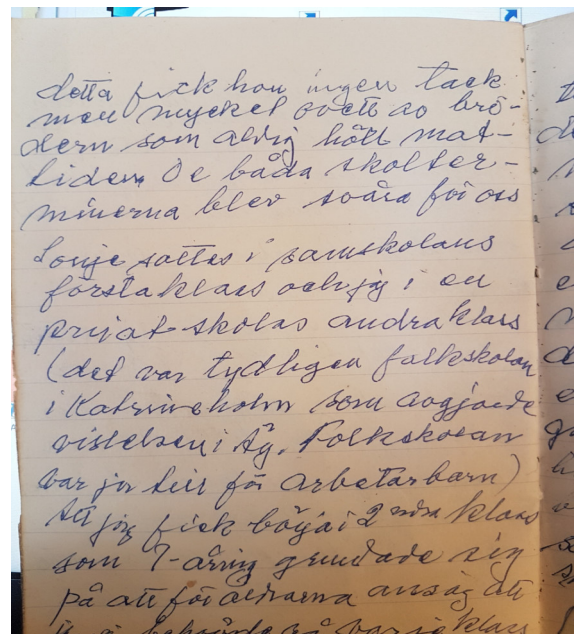 detta fick hon ingen tack
men mycket ovett av bro-
dern som aldrig höll mat-
tiden. De båda skolter-
minerna blev svåra för oss
sattes i samskolans
första klass och jag i en
privat skolas andra klass
(det var tydligen folkskolan
i Katrineholm som avgjorde
vistelsen i Folkskolan
var ju till för arbetarbarn)
Att jag fick börja i 2 ndra klass
som 7-åring grundade sig
på att föräldrarna ansåg att
behövde gå varje klass